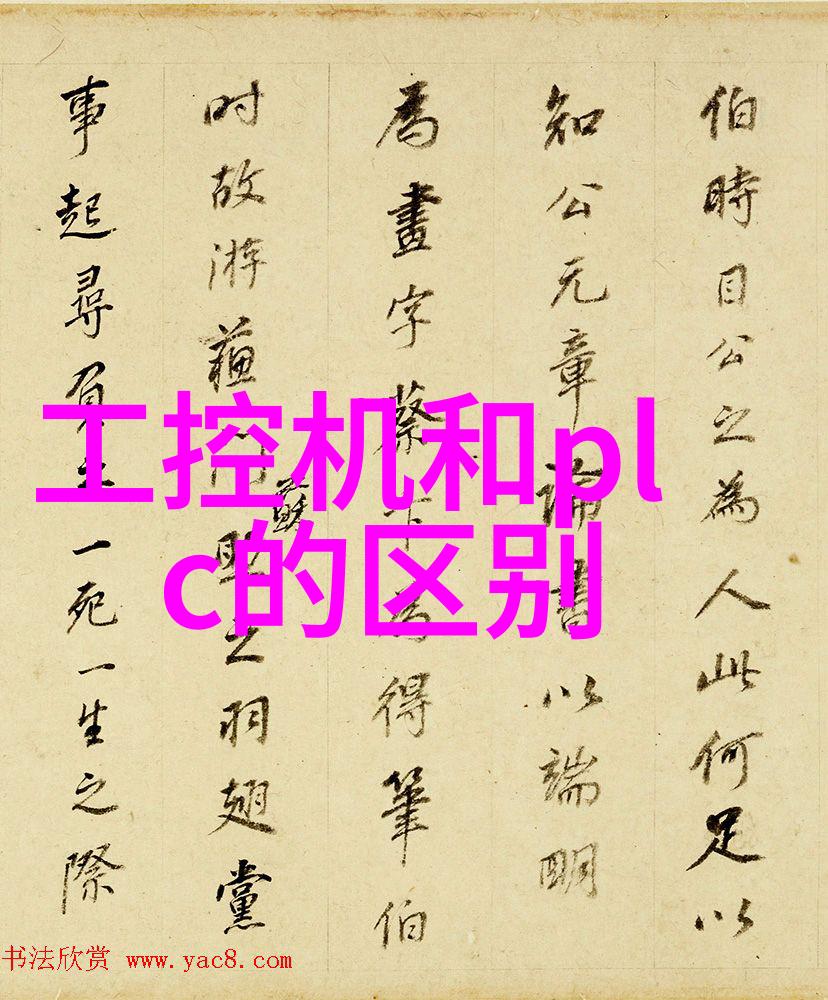 伯時目公之為人此何足以
知公元章論書以端明
為畫字蔡卞為得筆伯
时故游蘓門之羽翅黨
蘇
事起尋負之一死一生之際
工控机和pl
c的区别
书法欣赏 www.yac8.com